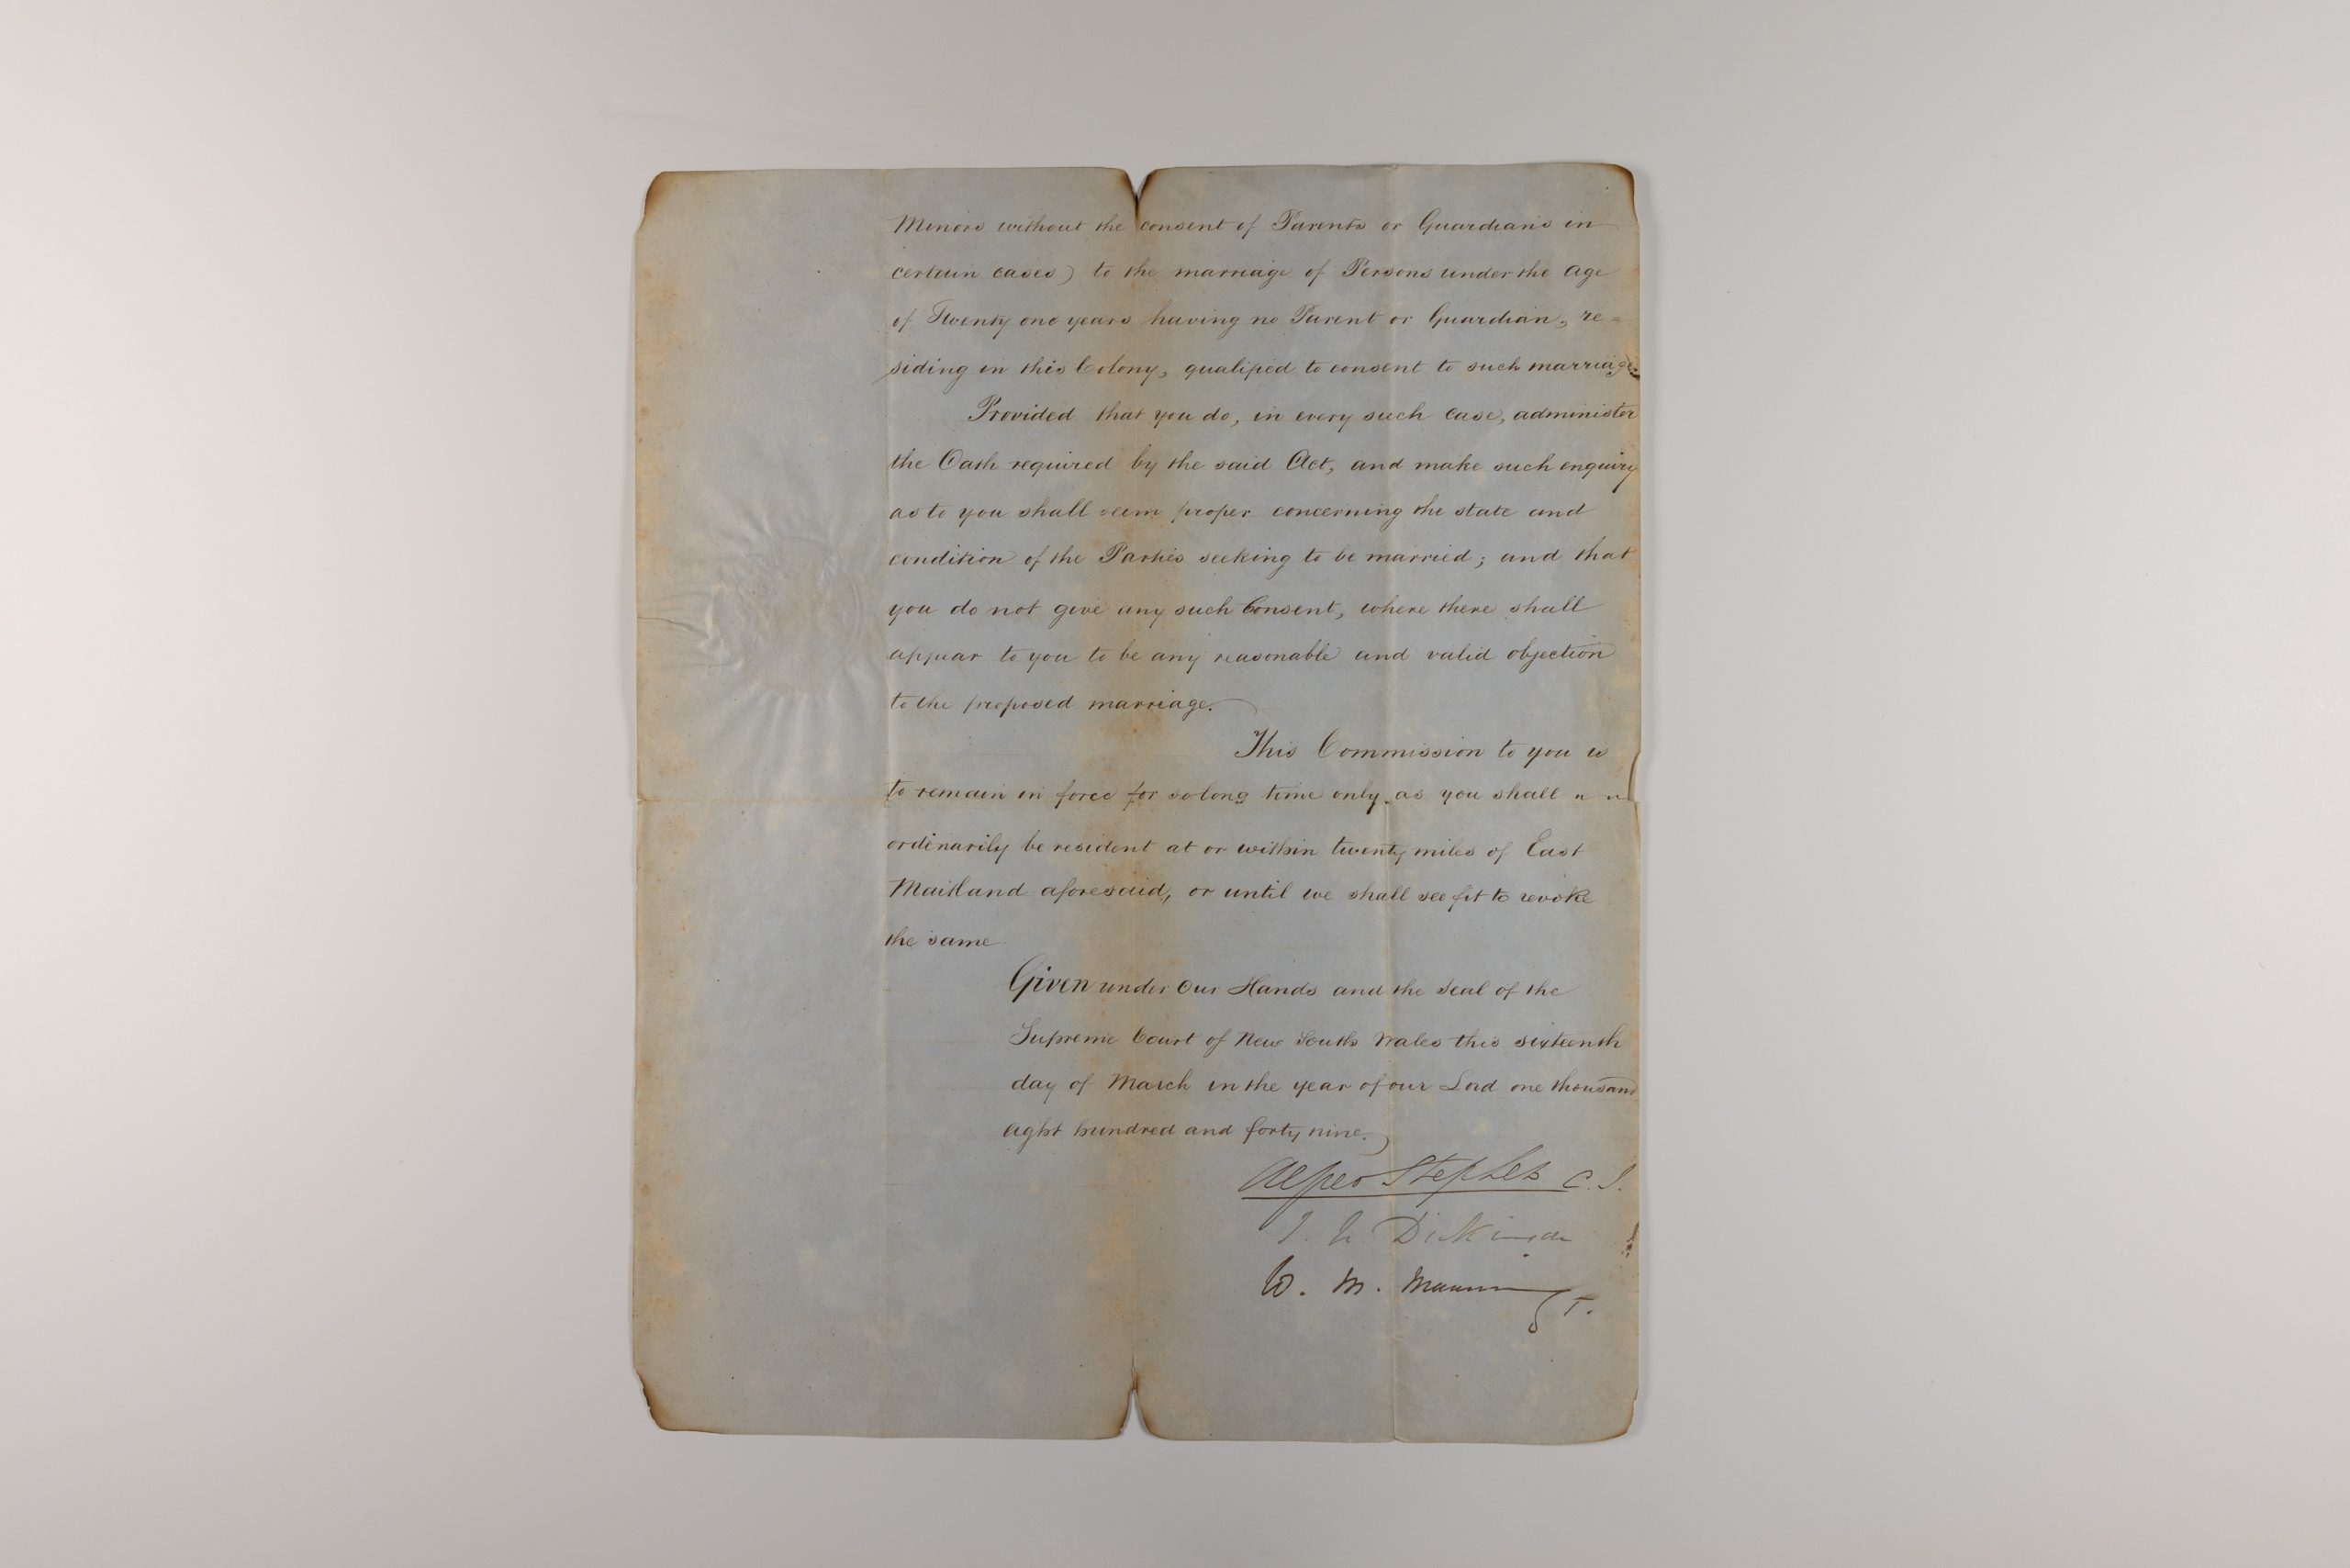 Minors without the consent of Parents or Guardians in
certain cases) to the marriage of Persons under the age
of Twenty one years having no Parent or Guardian, re-
siding in this Colony, qualified to consent to such marriage.
Provided that you do, in every such case, administer
the Oath required by the said Act, and make such enquiry
as to you shall seem proper concerning the state and
condition of the Parties seeking to be married; and that
you do not give any such Consent, where there shall
appear to you to be any reasonable and valid objection
to the proposed marriage.
This Commission to you is
to remain in force for so long time only as you shall
ordinarily be resident at or within twenty miles of East
Maitland aforesaid, or until we shall see fit to revoke
the same
Given under Our Hands and the Seal of the
Supreme Court of New South Wales this sixteenth
day of March in the year of our Lord one thousand
eight hundred and forty nine.
Alfred Stephen C. J.
J. N Dickinson
W. M. Manning J.